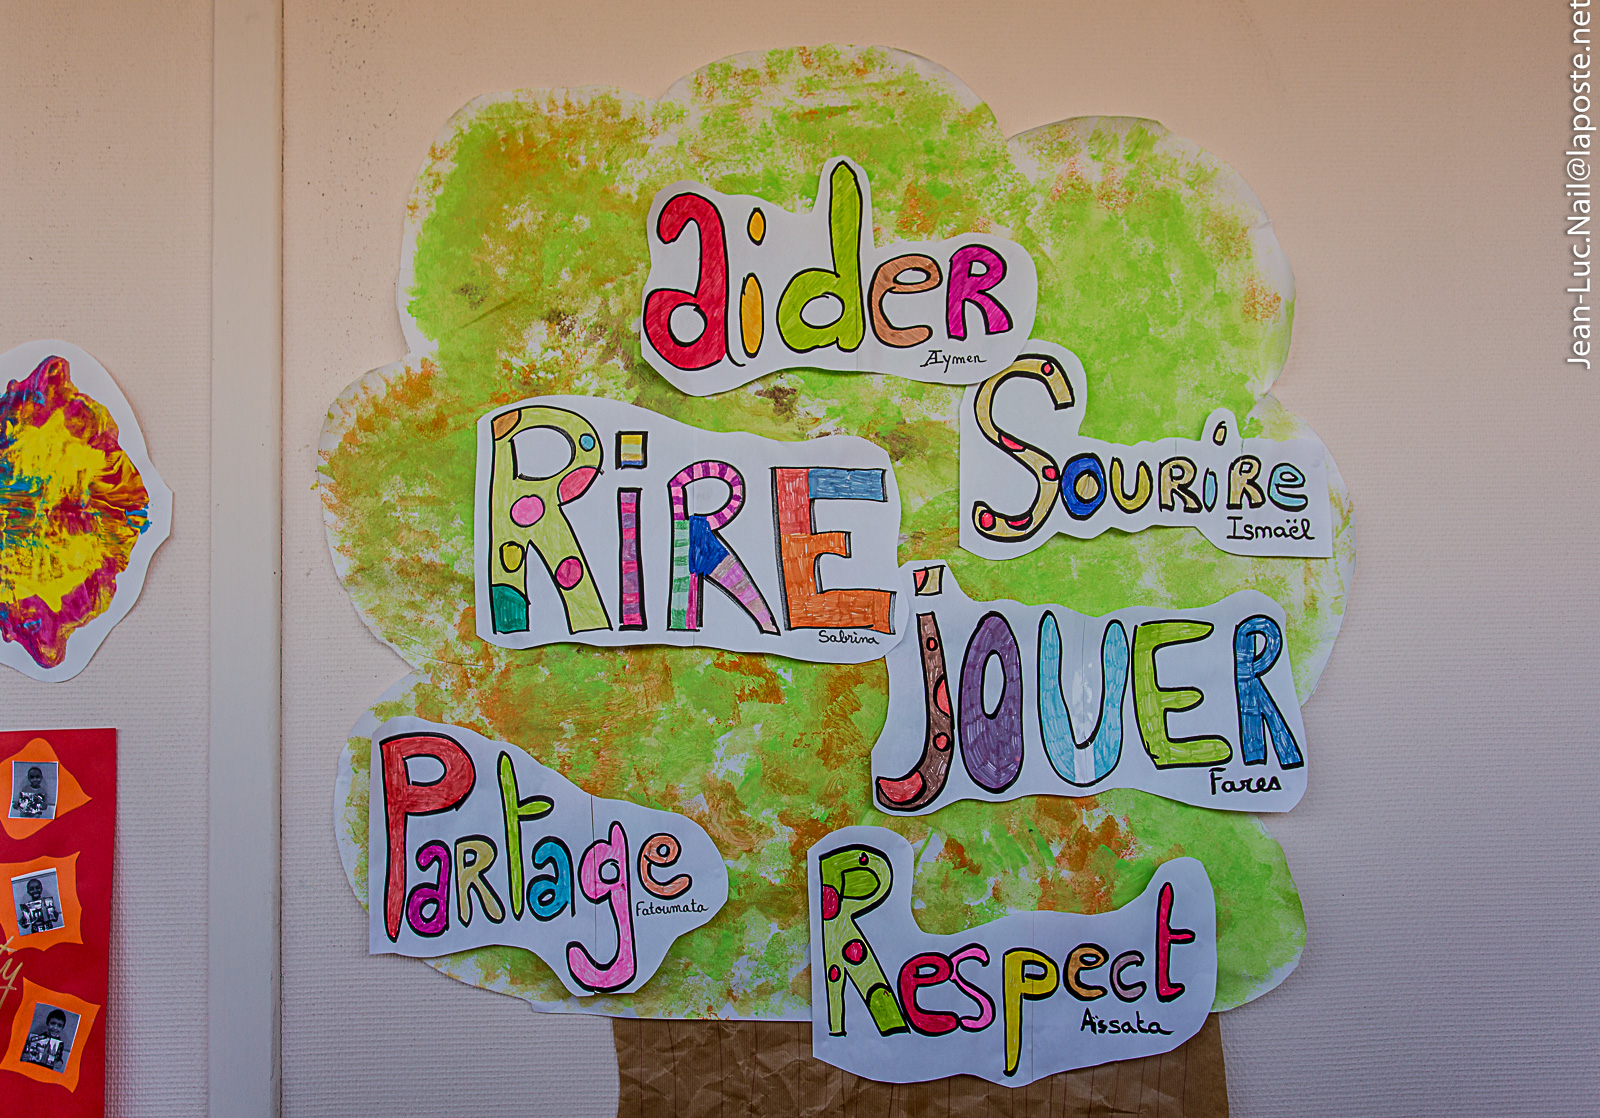 aider
Aymen
Sourire
Ismaël
Rire
Sabrina
jouer
Fares
Partage
Fatoumata
Respect
Aïssata
Jean-Luc.Nail@laposte.net